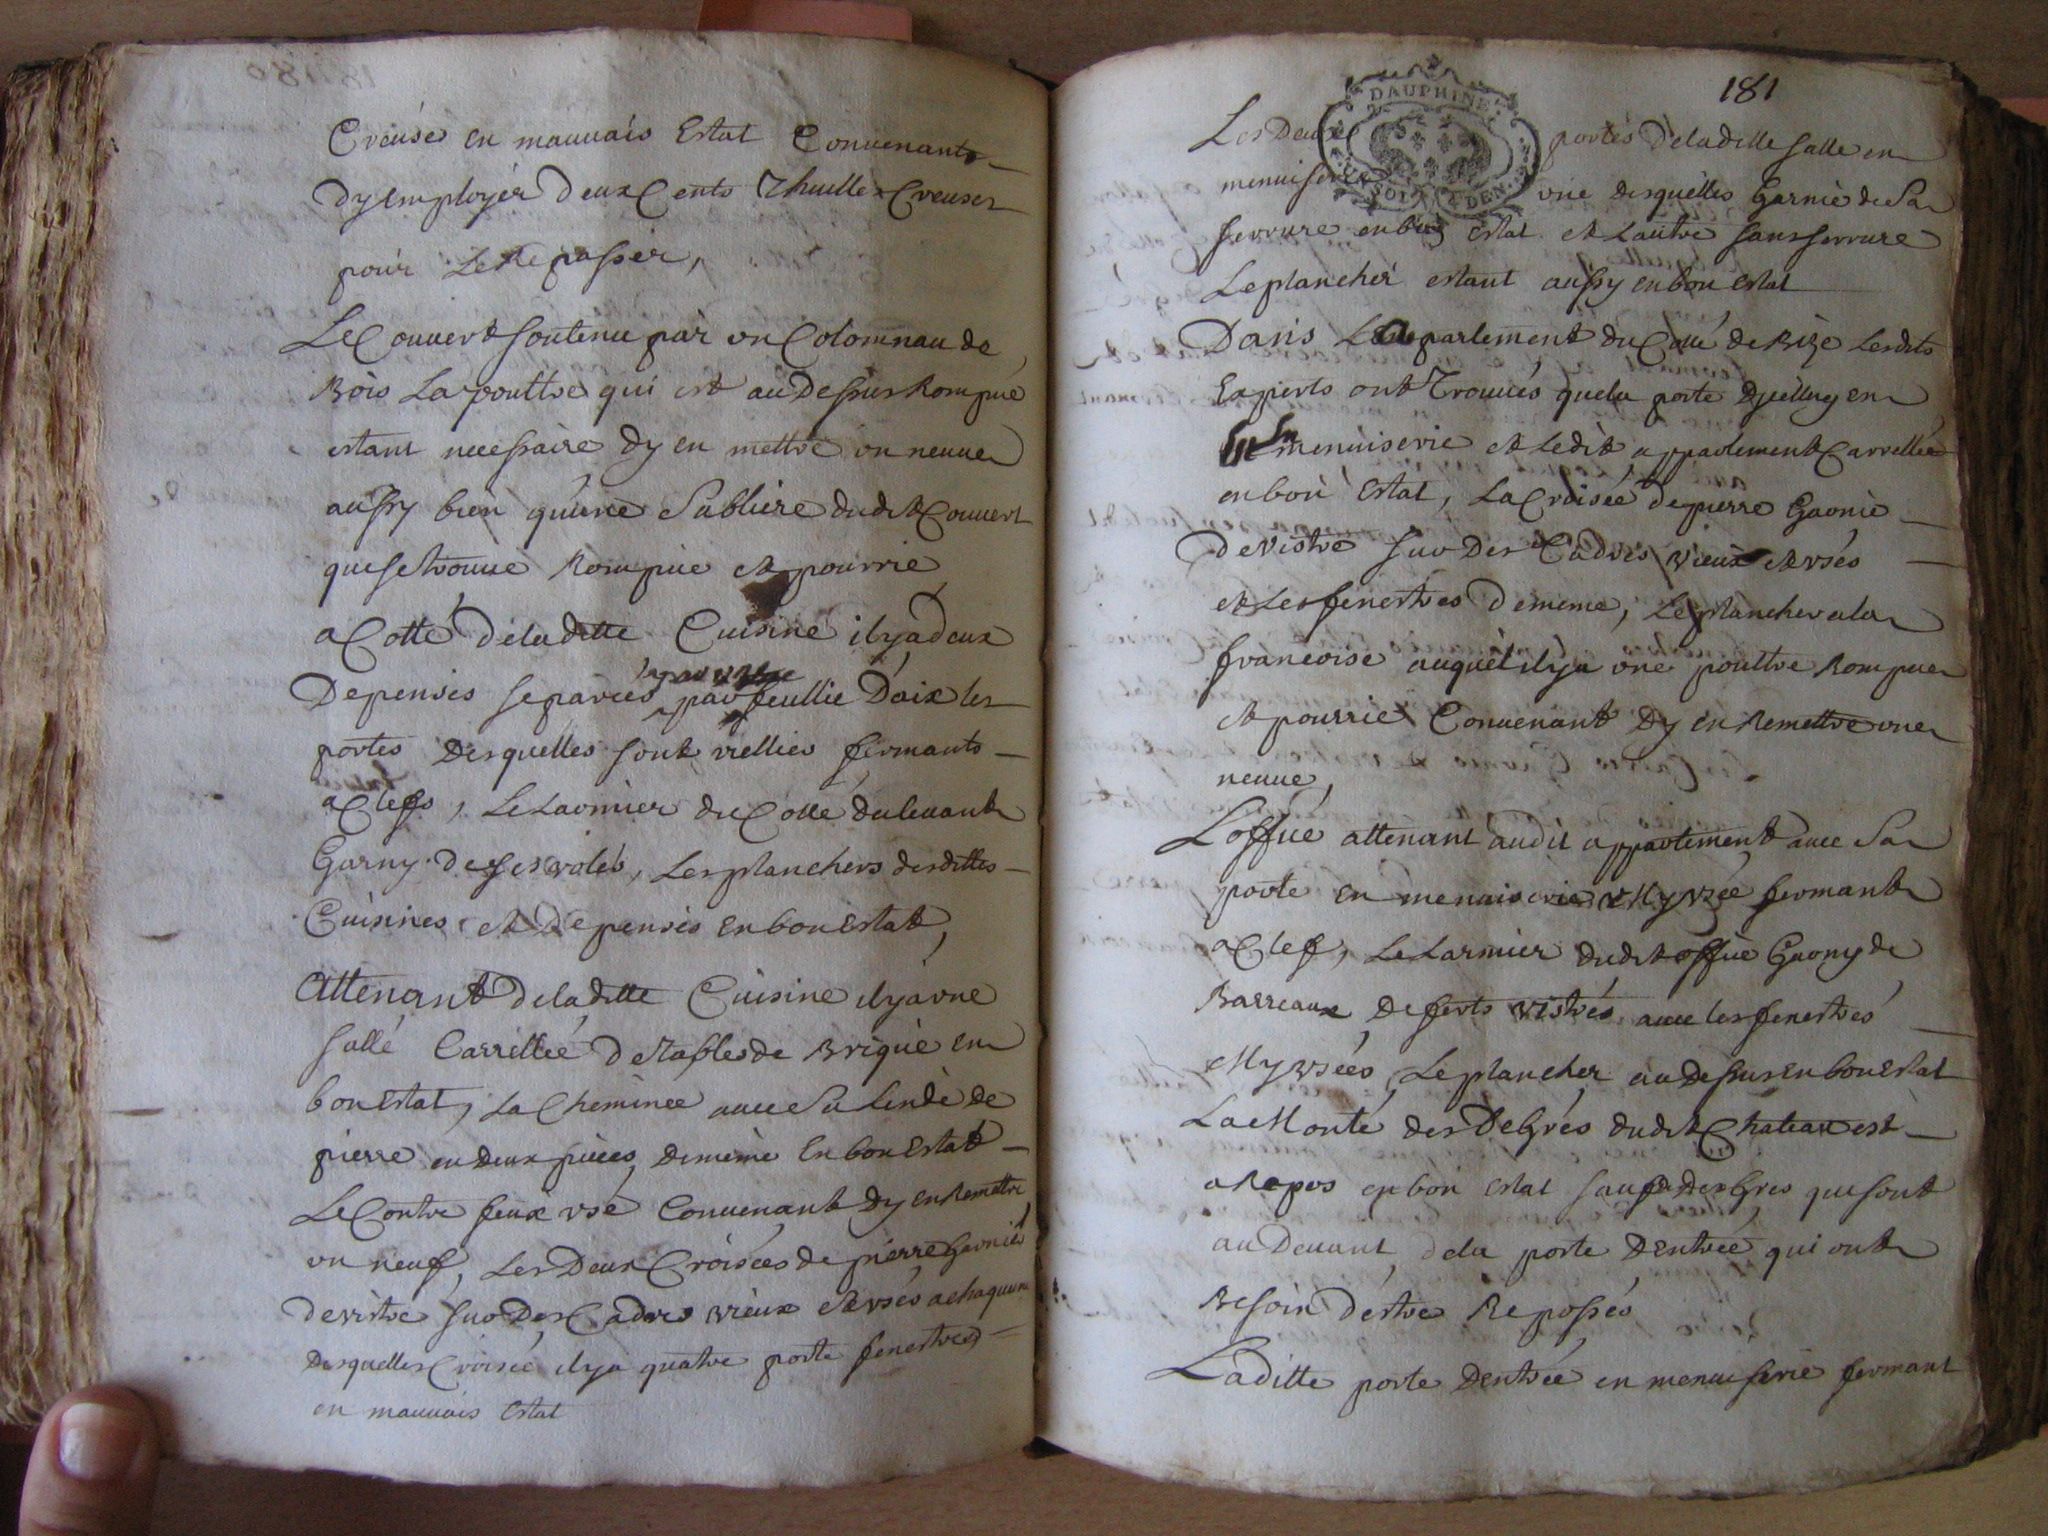 Creuses en mauuais Estat Conuenants
dy Employér deux Cents Thuilles Creuses
pour Le Repasser,
Le Couuert soutenu pár un Colomnau de
Bois La pouttre qui est au Dessus Rompue
estant necessaire dy en mettre un neuue
aussy bien qu'une Sabliére dudit Couuert
que se trouue Rompue et pourrie
a Cotté de la ditte Cuisine il y a deux
Depenses separées par feullie Daix les
portes desquelles sont viellies fermants
a Clefs, Le Larmier du Cotté du leuant
Garny de ses volés, Les planchers desdittes
Cuisines et Depenses en bon estat,
Attenant de la ditte Cuisine il y a une
salle Carrellée de tables de Brique en
bon Estat, La Cheminée auec Sa Linde de
pierre en deux piéces de méme En bon Estat
Le Contre feux usé Conuenant dy en Remettre
un neuf, Les Deux Croisées de pierre Garnies
de vistre sur Des Cadres vieux et usés a chaqune
Desquelles Croisée il y a quatre porte fenestres
en mauuais Estat
181
DAUPHINE
Les Deux portes de la ditte salle en
menuiserie une desquélles Garnie de Sa
serrure en bon Estat et Lautre sans serrure
Le planchér estant aussy en bon Estat
Dans Lapartement du Cotté de Bize Lesdits
Experts ont Trouués que la porte Djcelluy en
menuiserie et Ledit appartement Carrellée
en bon Estat, La Croisée de pierre Garnie
de vistre sur Des Cadres vieux et usés
et Les fenestres de meme, Le plancher a la
francoise auquél il y a une pouttre Rompue
et pourrie Conuenant Dy en Remettre une
neuue,
Loffice attenant audit appartement auec Sa
porte en menuiserie my usée fermant
a Clef, Le Larmier dudit office Garny de
Barreaux de ferts vistrés auec les fenestrés
My usées, Le plancher au Dessus en bon Estat
La Monté des Degrés dudit Chateau est
a Repos en bon estat sauf Des Degrés que sont
au Deuant de la porte Dentrée qui ont
Besoin d'éstre Reposses
Laditte porte Dentrée en menuiserie fermant